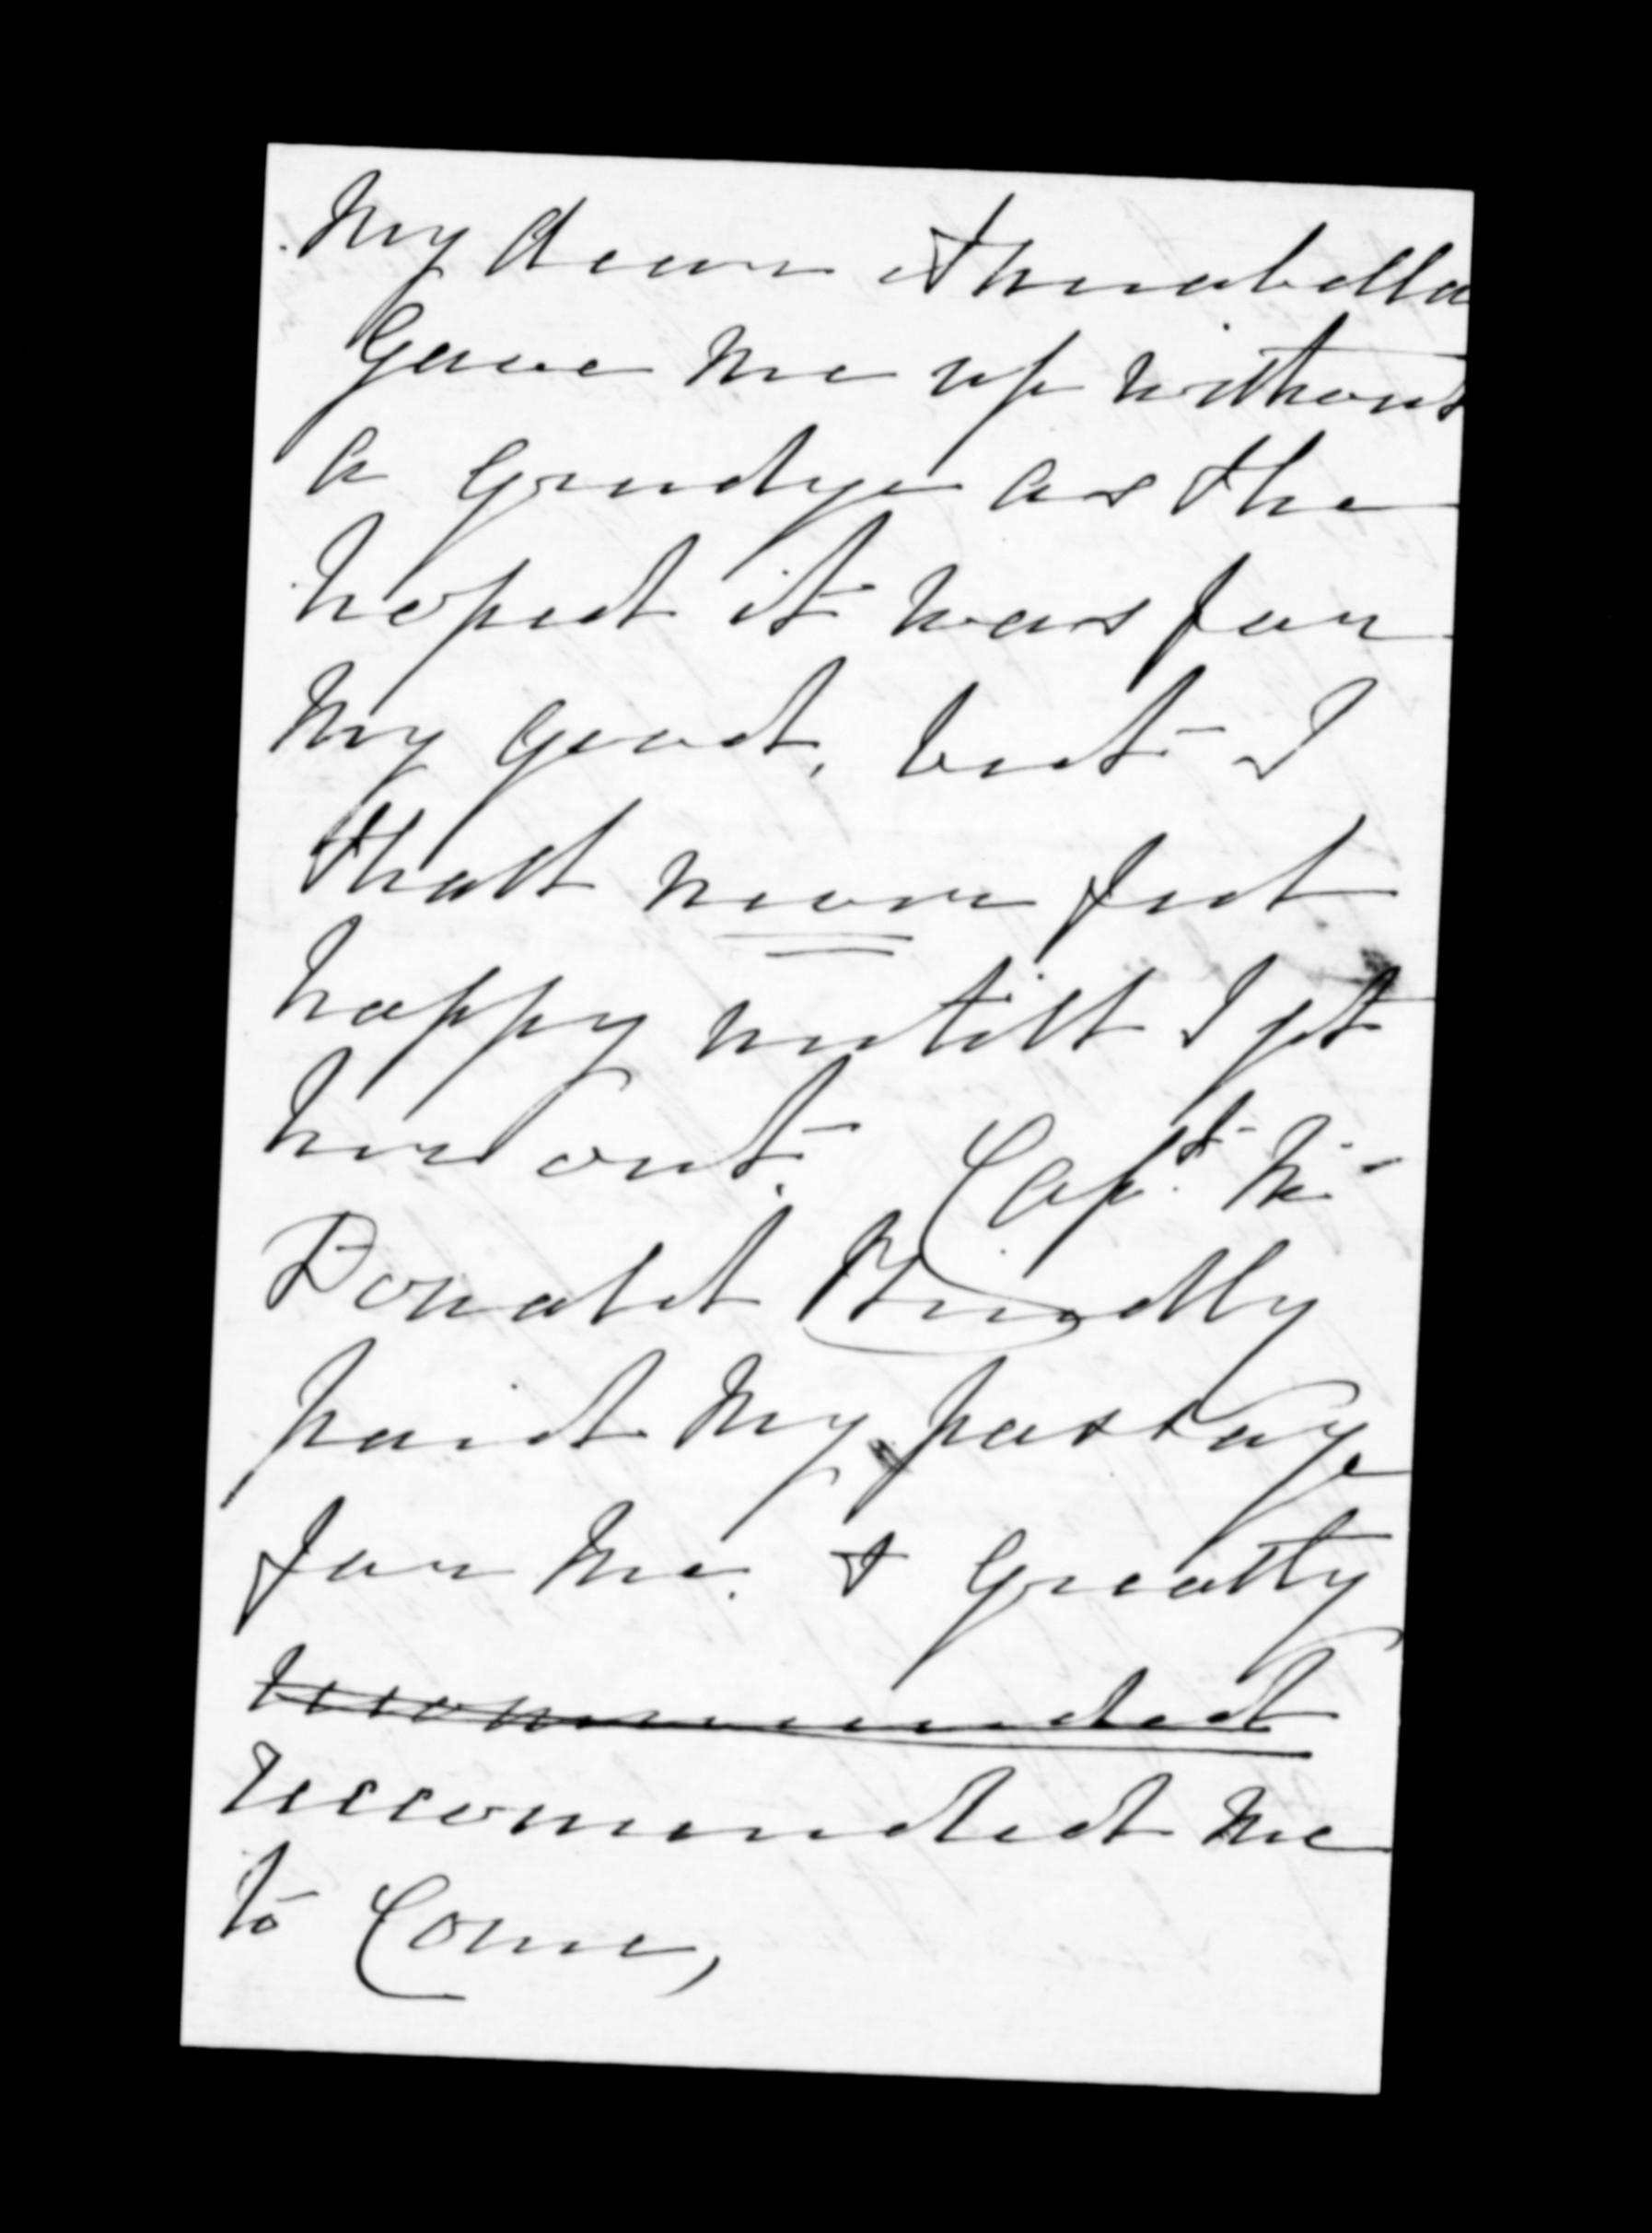 My dear Annabella
Gave me up without
a Grudge as she
hoped it was for
My good, but I
shall never feel
happy untill I get
her out. Capt. Mc
Donald Kindly
paid my passage
for me. & Greatly
reccommended
reccomended me
to Come,